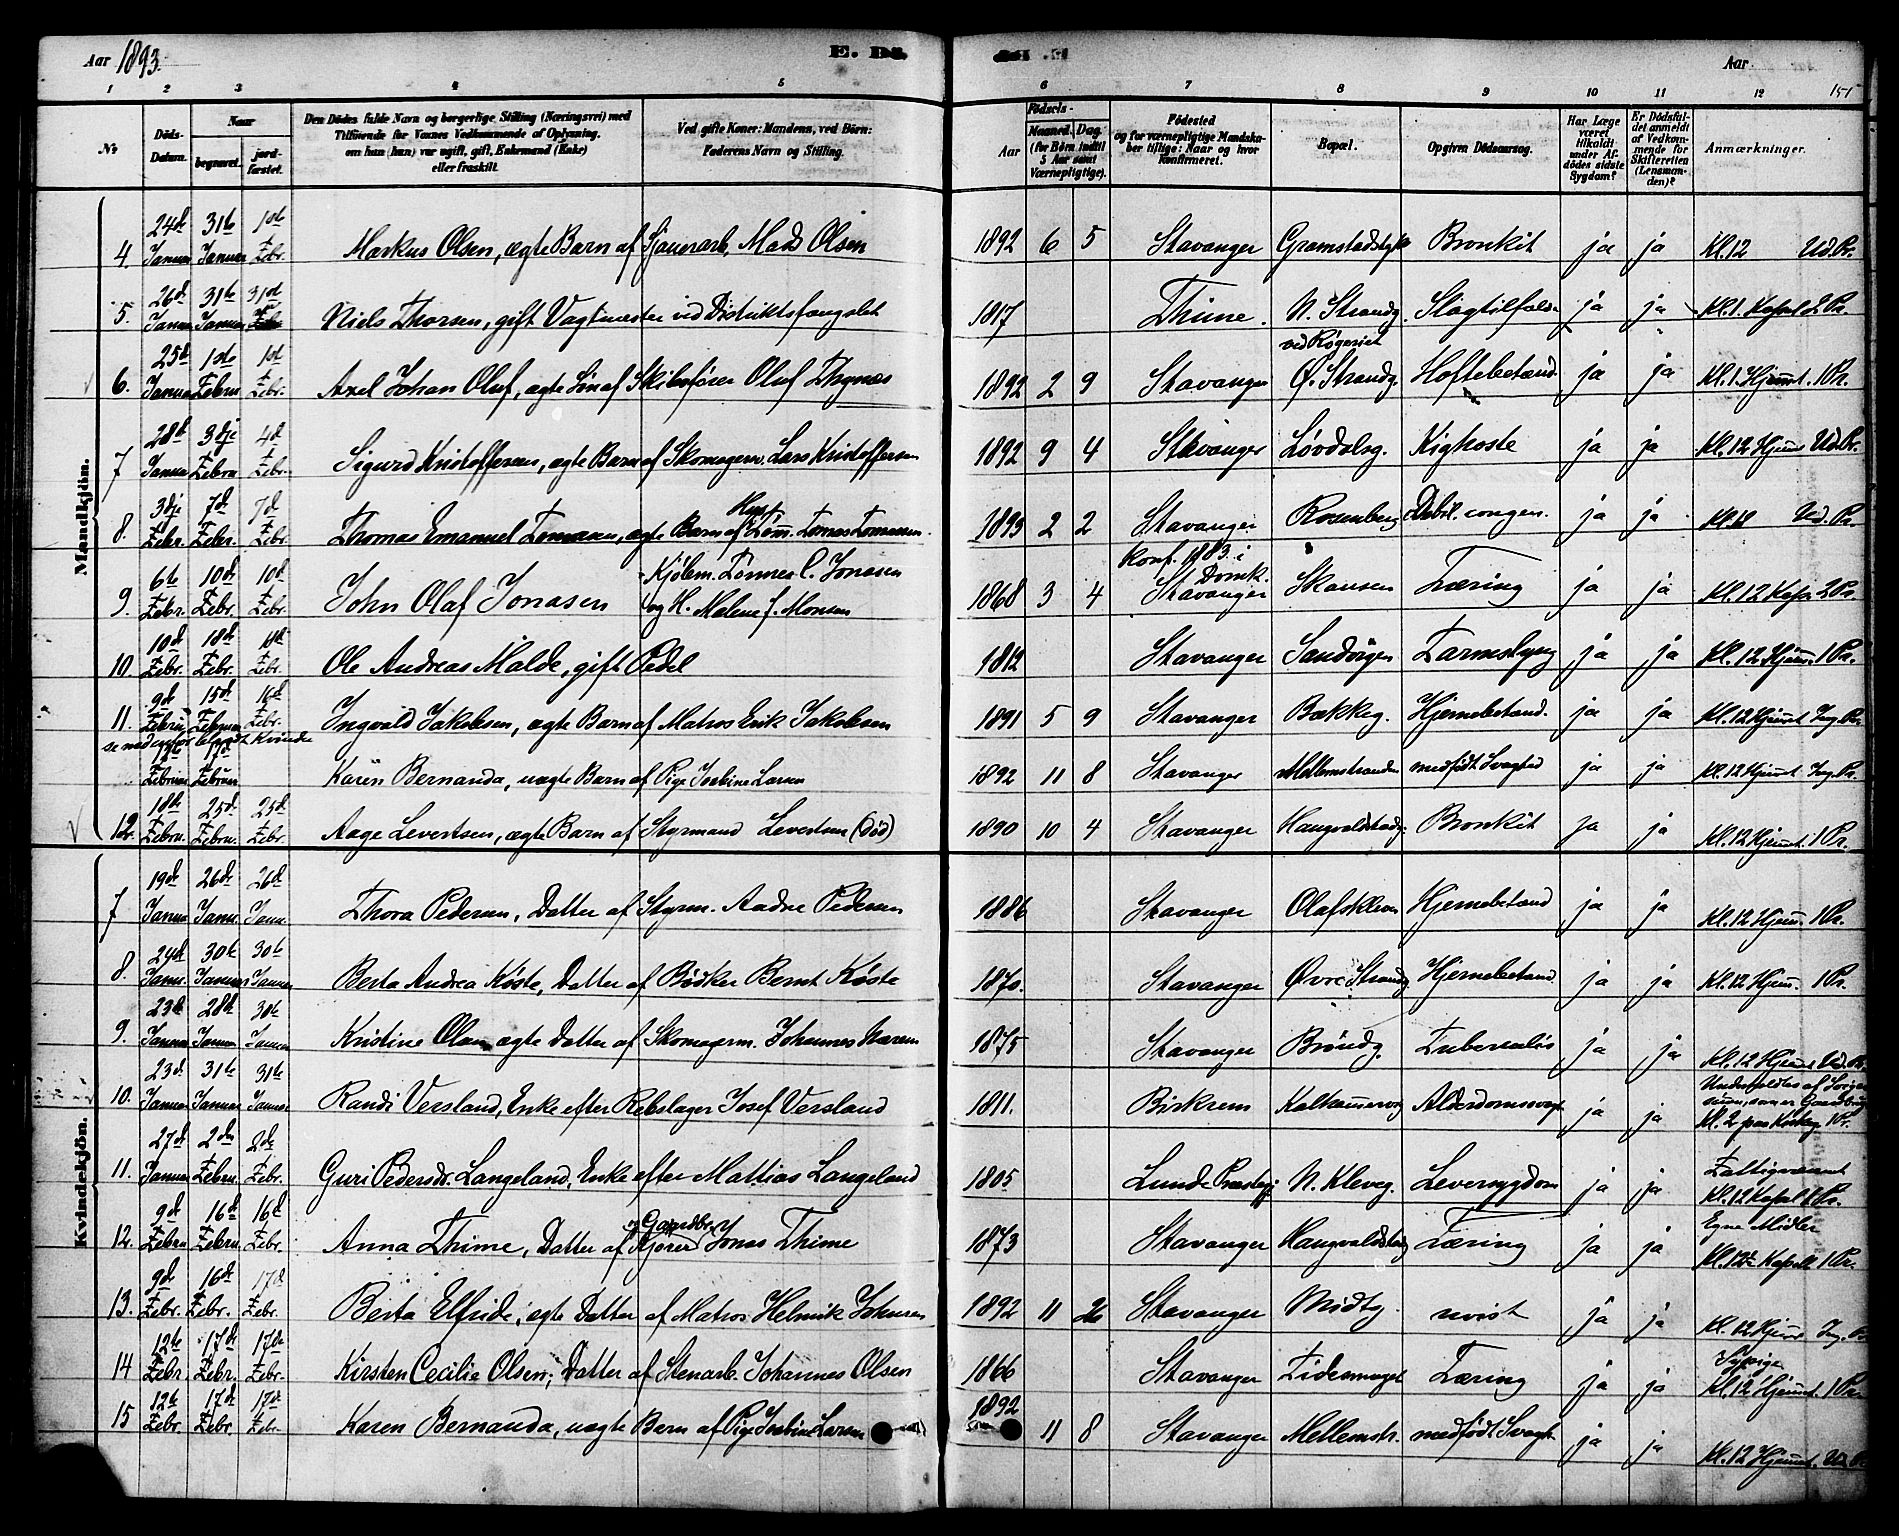 Aar 1893. E. Dö. Aar
1 2 3 4 5 6 7 8 9 10 11 12 151
No Döds-Datum. Naar begravet. jordfæstet. Den Dödes fulde Navn og borgerlige Stilling (Næringsvei) med Tilföiende for Voxnes Vedkommende af Oplysning, om han (hun) var ugift, gift, Enkemand (Enke) eller fraskilt. Ved gifte Koner: Mandens, ved Börn: Faderens Navn og Stilling. Födsels- Aar Maaned. Dag. (for Börn indtil 5 Aar samt Værnepligtige). Födested og for værnepligtige Mandskaber tillige: Naar og hvor konfirmeret. Bopæl. Opgiven Dödsaarsag. Har Læge været tilkaldt under Afdödes sidste Sygdom? Er Dödsfaldet anmeldt af Vedkommende for Skifteretten (Lensmanden)? Anmærkninger.
Mandkjön.
4. 24de Januar 31te Januar 1ste Febr. Markus Olsen, ægte Barn af Sjauerarb. Mads Olsen 1892 6 5 Stavanger Bronkit ja ja Kl. 12 Ud. Pr.
5. 26de Januar 31te Januar 31te Niels Thorsen, gift Vagtmester ved Distriktsfængslet 1817 Thime. N. Strandg. Slagtilfælde ja ja Kl. 1. Kapel 2 Pr.
6. 25de Januar 1ste Febru. 1ste Febr. Axel Johan Oluf, ægte Søn af Skibsfører Oluf Thynæs 1892 2 9 Stavanger ved Røgeriet Ø. Strandg. Hoftebetænd. ja ja Kl. 1 Hjemmet. 1 Pr.
7 28de Januar 3dje Febru. 4de Febr. Sigurd Kristoffersen, ægte Barn af Skomagersv. Lars Kristoffersen 1892 9 4 Stavanger Løvdalsg. Kighoste ja ja Kl. 12 Hjem Ud. Pr.
8. 3dje Febr. 7de Febr. 7de Febr. Thomas Emanuel Tomasen, ægte Barn af Hust. Tøm. Tomas Tomassen. 1893 2 2 Stavanger Rosenberg Debil. congen. ja ja Kl. 12 Ud. Pr.
9. 6te Febr. 10de Febr. 10de Febr. John Olaf Jonasen Kjøbm. Tønnes C. Jonasen og H. Malene f. Monsen 1868 3 4 konf. 1883. i Domk. Stavanger Skansen Tæring ja ja Kl. 12 Kapel 2 Pr.
10. 10de Febr. 18de Febr. Febr. Ole Andreas Malde, gift Pedel 1812 Stavanger Sandvigen Tarmslyng ja ja Kl. 12 Hjem. 1 Pr.
11. 9de Febru. 15de Februar 16de Febr. Ingvald Jakobsen, ægte Barn af Matros Erik Jakobsen 1891 5 9 Stavanger Bakkeg. Hjernebetænd. ja ja Kl. 12 Hjemmet Ing. Pr.
se nedenfor blandt Kvinder
12te Februar 17de Februar Karen Bernanda, uægte Barn af Pige Serbine Larsen 1892 11 8 Stavanger Mellemstranden medfødt Svaghed ja ja Kl. 12 Hjemmet Ing. Pr.
12. 18de Febru. 25de Febru. 25de Febr. Aage Levertsen, ægte Barn af Styrmand Levertsen (død) 1890 10 4 Stavanger Haugvaldstadg. Bronkit ja ja Kl. 12 Hjemmet. 1 Pr.
Kvindekjön.
7 19de Januar 26de Janu. 26de Janu. Thora Pedersen, Datter af Styrm. Andre Pedersen 1886 Stavanger Olafskleven Hjernebetænd ja ja Kl. 12 Hjem. 1 Pr.
8. 24de Janu. 30te Januar 30te Januar Berta Andrea Køste, Datter af Bødker Bernt Køste 1870. Stavanger Øvre Strandg Hjernebetænd ja ja Kl. 12 Hjem. 1 Pr.
9. 23de Januar 28de Januar 30te Januar Kristine Olsen ægte Datter af Skomagerm. Johannes 1875 Stavanger Brøndg. Tuberculos ja ja Kl. 12 Hjemmet Ud. Pr.
10. 23de Januar 31te Januar 31te Januar Randi Versland, Enke efter Rebslager Josef Versland 1811. Birkrem Kalhammerveg Alderdomssvagh. ja ja Underholdtes af Kl. 2 paa Kirkeg 1 Pr.
11. 27de Januar 2den Febru. 2de Febr. Guri Pedersdr. Langeland, Enke efter Mattias Langeland 1805 Lunde Præstegj N. Kleveg. Leversygdom ja ja Fattigvæsnet Kl. 12 Kapel 1 Pr.
12. 9de Febru 16de Febru. 16de Febr. Anna Thime, Datter af Kjører og Gaardbr. Jonas Thime 1873 Stavanger Haugvaldstadg Tæring ja ja Egne Midler Kl. 12½ Kapell 1 Pr.
13. 9de Febr. 16de Febr. 17de Febr. Berta Elfride, ægte Datter af Matros Helmik Johnsen 1892 11 26 Stavanger Midtg. uvist ja ja Kl. 12 Hjem Ing. Pr
14 12te Febr. 17de Febr. 17de Febr. Kirsten Cecilie Olsen, Datter af Stenarb. Johannes Olsen 1866 Stavanger Tidemanget Tæring ja ja Sypige Kl. 12 Hjemmet. 1 Pr.
15 12te Febr. 17de Febr. 17de Febr Karen Bernanda, uægte Barn af Pige Serbine Larsen 1892 11 8 Stavanger Mellemstr. medfødt Svagh. ja ja Kl. 12 Hjemmet. Ud. Pr